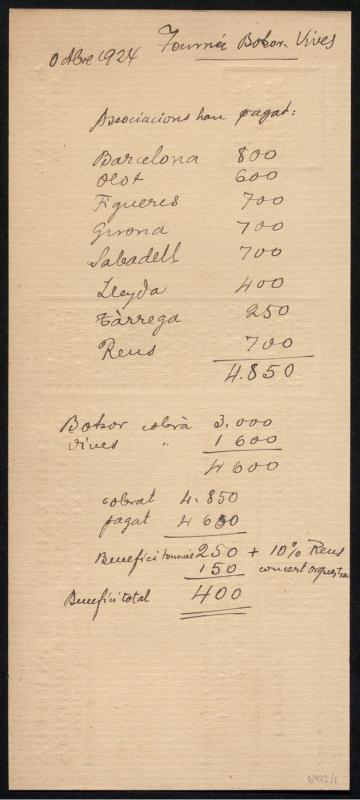 Octbre 1924 Tournée Bokor-Vives
Associacions han pagat:
Barcelona 800
Olot 600
Figueres 700
Girona 700
Sabadell 700
Lleyda 400
Tàrrega 250
Reus 700
4.850
Bokor cobrà 3.000
Vives " 1600
4600
cobrat 4.850
pagat 4600
Benefici tournée 250 + 10% Reus
150 concert orquestra
Benefici total 400
6422/1